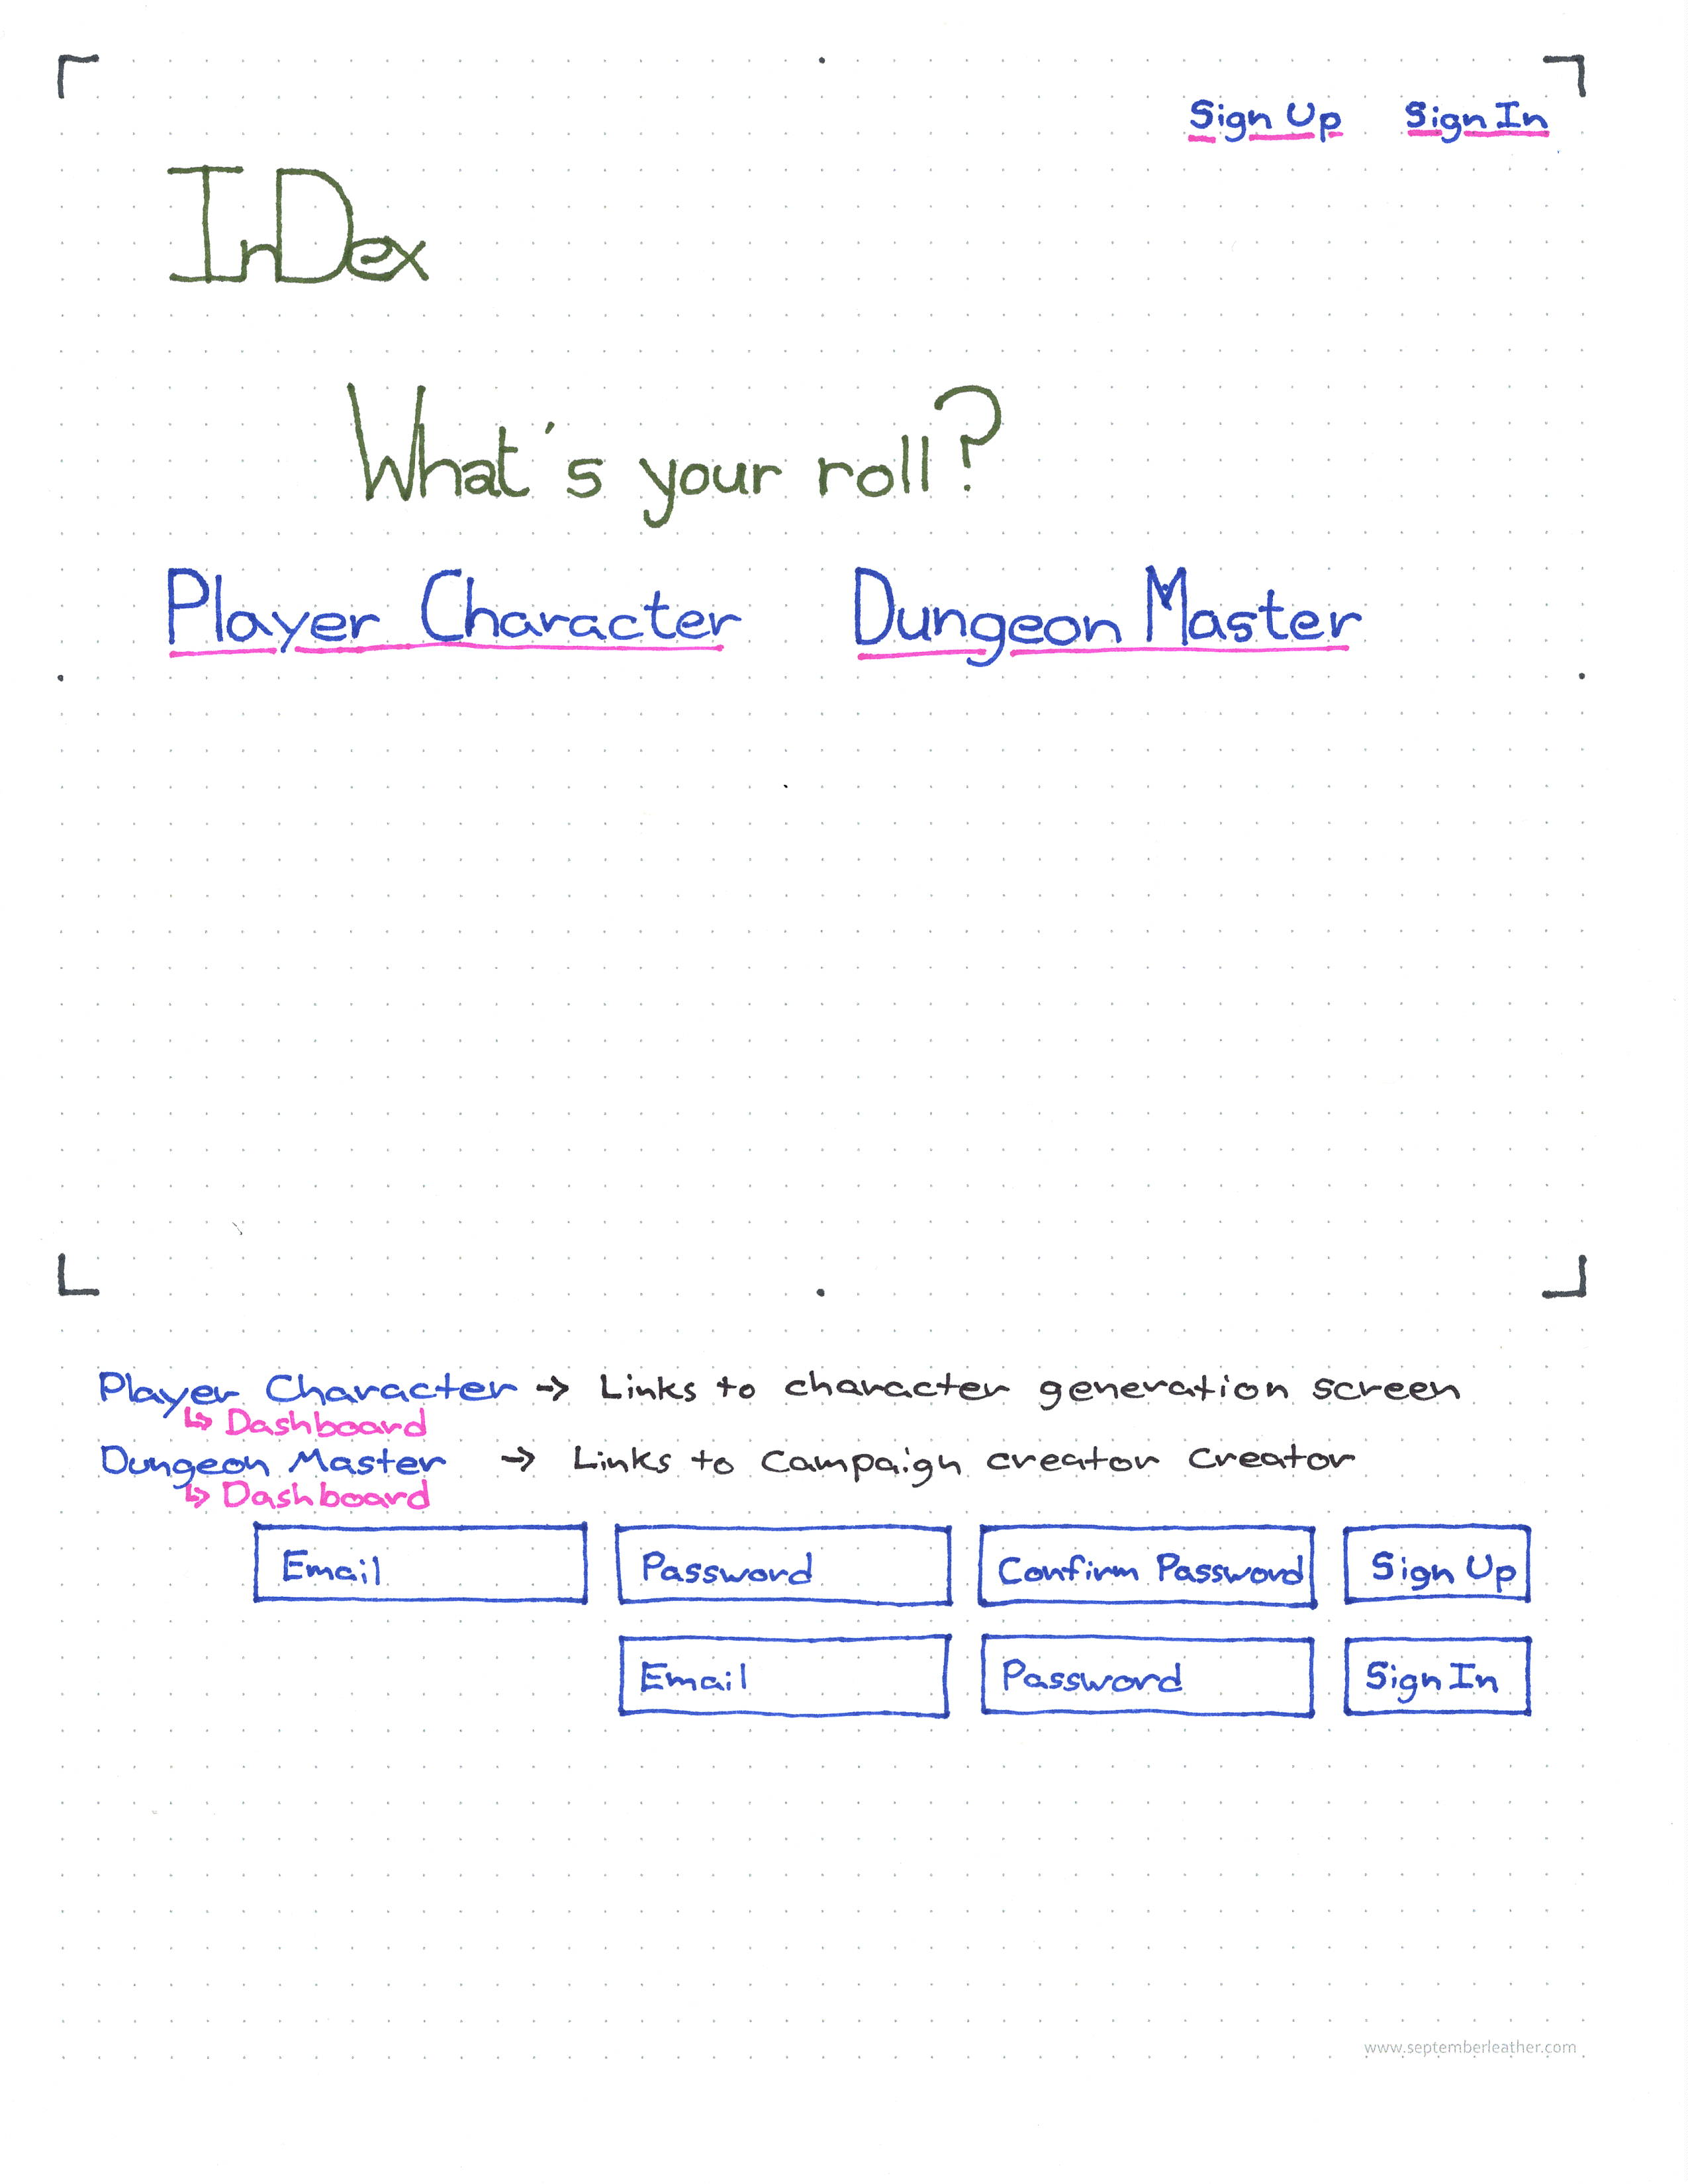 Sign Up Sign In
InDex
What's your roll?
Player Character Dungeon Master
Player Character → Links to character generation screen
↳ Dashboard
Dungeon Master → Links to Campaign creator Creator
↳ Dashboard
Email Password Confirm Password Sign Up
Email Password Sign In
www.septemberleather.com